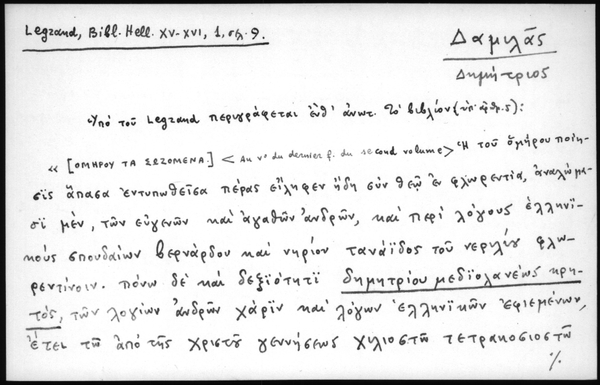 Legrand, Bibl. Hell. XV-XVI, 1, σελ. 9.
Δαμιλᾶς
Δημήτριος
Ὑπό τοῦ Legrand περιγράφεται ἐνθ' ἀνωτ. τό βιβλίον (ὑπ' ἀριθμ. 5):
« [ΟΜΗΡΟΥ ΤΑ ΣΩΖΟΜΕΝΑ.] < Au vº du dernier f. du second volume > Ἡ τοῦ ὁμήρου ποίη-
σϊς ἅπασα ἐντυπωθεῖσα πέρας εἴληφεν ἤδη σὺν θεῷ ἐν φλωρεντία, ἀναλώμα-
σϊ μὲν, τῶν εὐγενῶν καὶ ἀγαθῶν ἀνδρῶν, καὶ περὶ λόγους ἑλληνϊ-
κοὺς σπουδαίων βερνάρδου καὶ νηρίου τανάϊδος τοῦ νεριλίου φλω-
ρεντίνοιν. πόνω δὲ καὶ δεξϊότητϊ δημητρίου μεδϊολανέως κρη-
τὸς, τῶν λογίων ἀνδρῶν χάρϊν καὶ λόγων ἑλληνϊκῶν ἐφιεμένων,
ἔτει τῶ ἀπὸ τῆς χριστοῦ γεννήσεως χιλιοστῶ τετρακοσιοστῶ
%.